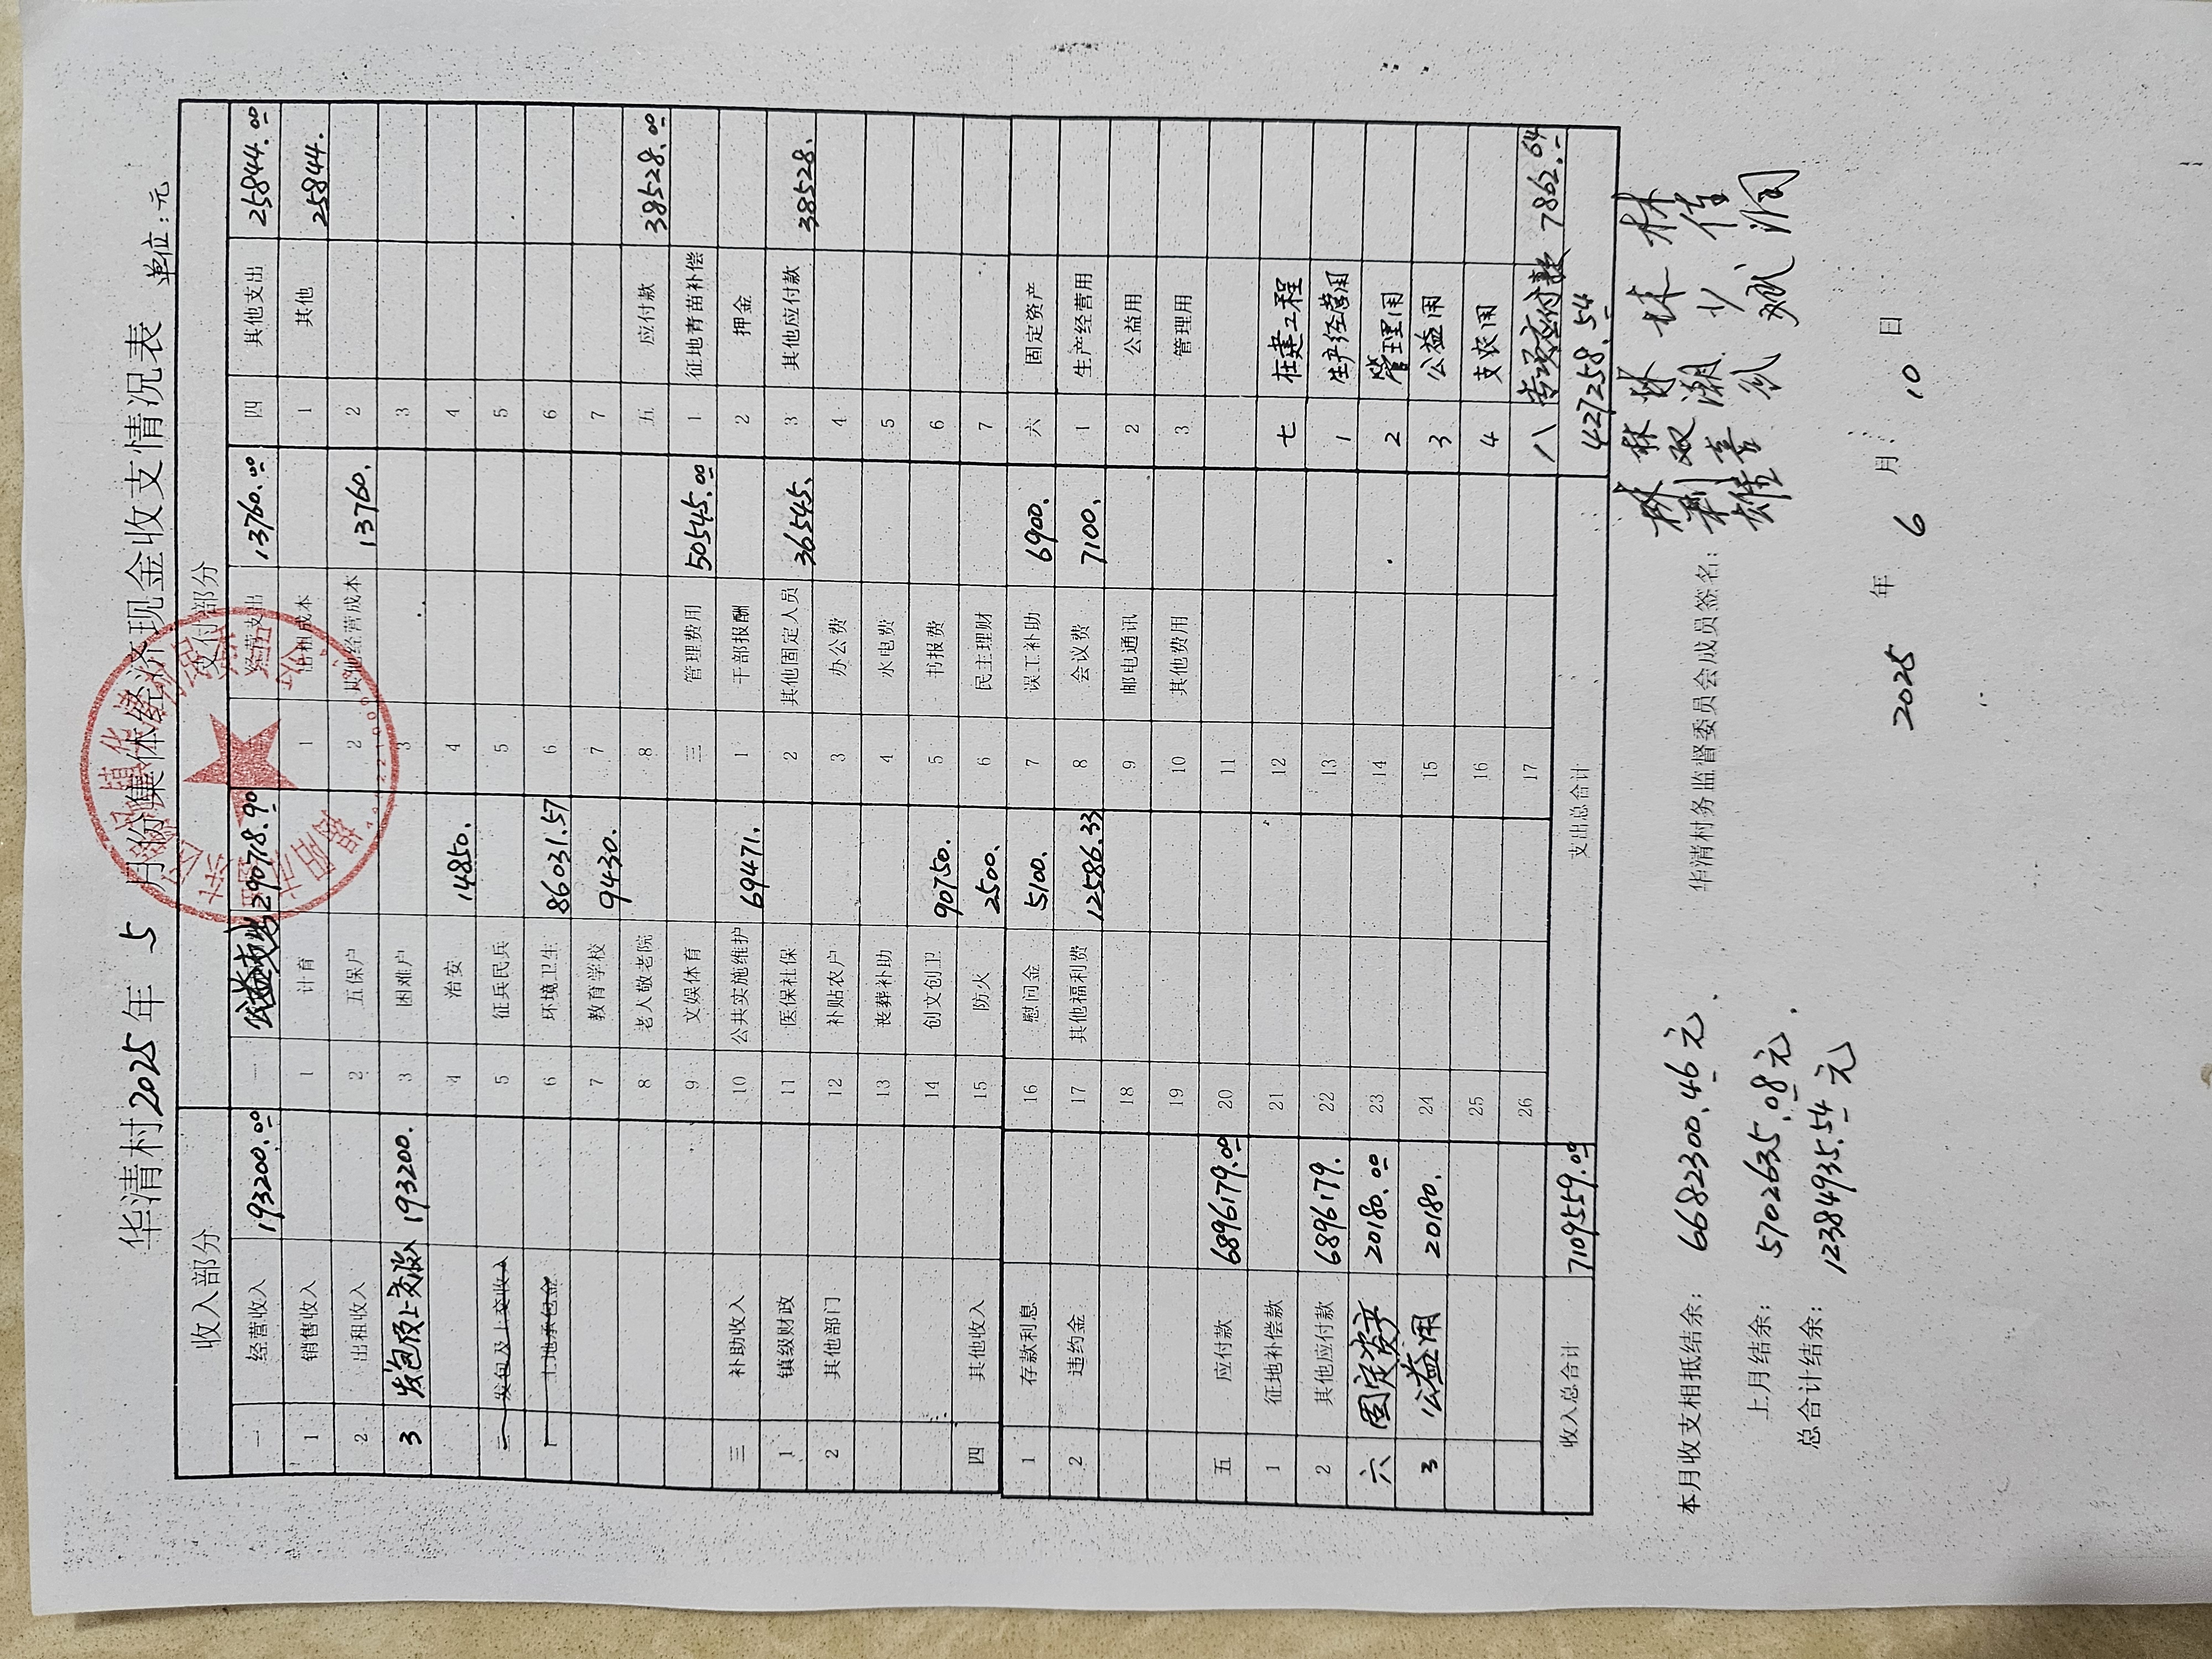 华清村2025年 5 月份集体经济现金收支情况表 单位:元
收入部分 支付部分
一 经营收入 193200.00 一 公益支出 290718.90 二 经营支出 13760.00 四 其他支出 25844.00
1 销售收入 1 计育 1 出租成本 1 其他 25844.
2 出租收入 2 五保户 2 其他经营成本 13760. 2
3 发包及上交收入 193200. 3 困难户 3 3
4 治安 14850. 4 4
二 发包及上交收入 5 征兵民兵 5 5
1 土地承包金 6 环境卫生 86031.57 6 6
7 教育学校 9430. 7 7
8 老人敬老院 8 五 应付款 38528.00
9 文娱体育 三 管理费用 50545.00 1 征地青苗补偿
三 补助收入 10 公共实施维护 69471. 1 干部报酬 2 押金
1 镇级财政 11 医保社保 2 其他固定人员 36545. 3 其他应付款 38528.
2 其他部门 12 补贴农户 3 办公费 4
13 丧葬补助 4 水电费 5
14 创文创卫 90750. 5 书报费 6
四 其他收入 15 防火 2500. 6 民主理财 7
1 存款利息 16 慰问金 5100. 7 误工补助 6900. 六 固定资产
2 违约金 17 其他福利费 12586.33 8 会议费 7100. 1 生产经营用
18 9 邮电通讯 2 公益用
19 10 其他费用 3 管理用
五 应付款 6896179.00 20 11
1 征地补偿款 21 12 七 在建工程
2 其他应付款 6896179. 22 13 1 生产经营用
六 固定资产 20180.00 23 14 2 管理用
3 公益用 20180. 24 15 3 公益用
25 16 4 支农用
26 17 八 专项应付款 7862.64
收入总合计 7109559.00 支出总合计 427258.54
本月收支相抵结余: 6682300.46元.
上月结余: 5702635.08元.
总合计结余: 12384935.54元
华清村村务监督委员会成员签名:
2025 年 6 月 10 日